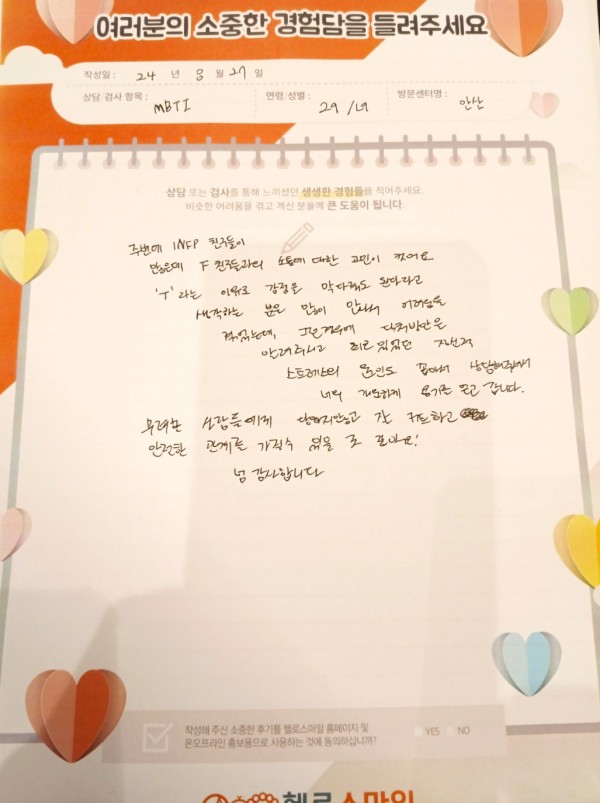 여러분의 소중한 경험담을 들려주세요
작성일 : 24 년 8 월 27 일
상담/검사 항목 : MBTI
연령/성별 : 29 / 여
방문센터명 : 안산
상담 또는 검사를 통해 느끼셨던 생생한 경험들을 적어주세요.
비슷한 어려움을 겪고 계신 분들께 큰 도움이 됩니다.
주변에 INFP 친구들이
많은데 F 친구들과의 소통에 대한 고민이 컸어요
'T'라는 이유로 감정을 막대해도 된다라고
생각하는 분을 많이 만나서 어려움을
겪었는데, 대처방안은
알려주시고
스트레스의 원인도 상담해주셔서
너무 용기를 얻고 갑니다.
무례한 사람들에게
안전한 관계를 가질수 있을 것 같아요!
넘 감사합니다
작성해 주신 소중한 후기를 헬로스마일 홈페이지 및
온오프라인 홍보용으로 사용하는 것에 동의하십니까?
YES NO
헬로스마일